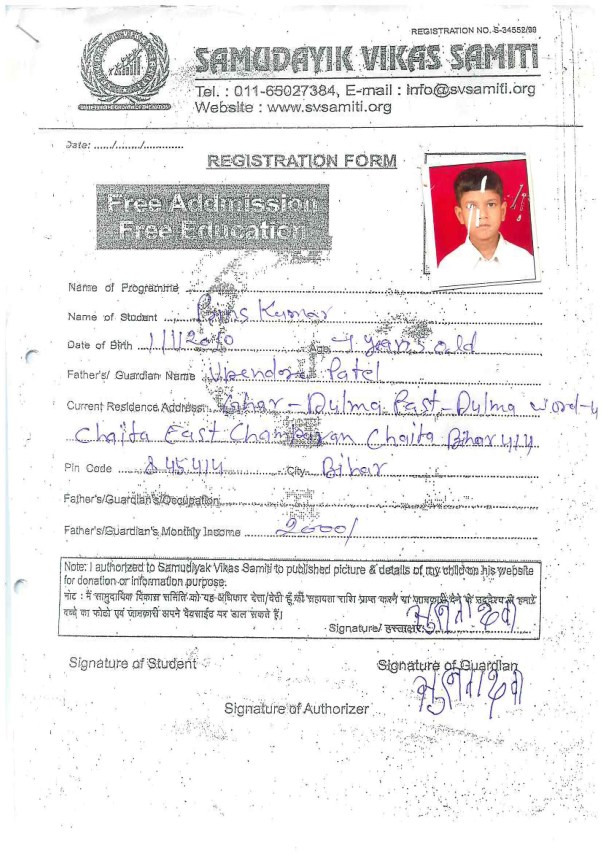 REGISTRATION NO. S-34552/99
SAMUDAYIK VIKAS SAMITI
Tel. : 011-65027384, E-mail : info@svsamiti.org
Website : www.svsamiti.org
Date: ....../......../............
REGISTRATION FORM
Free Addmission
Free Education
Name of Programme
Name of Student Prins Kumar
Date of Birth 1/1/2010 Age 9 years old
Father's/ Guardian Name Upendra Patel
Current Residence Address Ghar - Dulma East - Dulma word-4
Chaita East Champaran Chaita Bihar 414
Pin Code 845414 City Bihar
Father's/Guardian's Occupation
Father's/Guardian's Monthly Income 2000/
Note: I authorized to Samudiyak Vikas Samiti to published picture & details of my child on his website
for donation or information purpose.
नोट : मैं सामुदायिक विकास समिति को यह अधिकार देता/देती हूँ की सहायता राशि प्राप्त करने या जानकारी देने के उद्देश्य से हमारे
बच्चे का फोटो एवं जानकारी अपने वैबसाईड पर डाल सकते हैं।
Signature/ हस्ताक्षर
Signature of Student Signature of Guardian
Signature of Authorizer